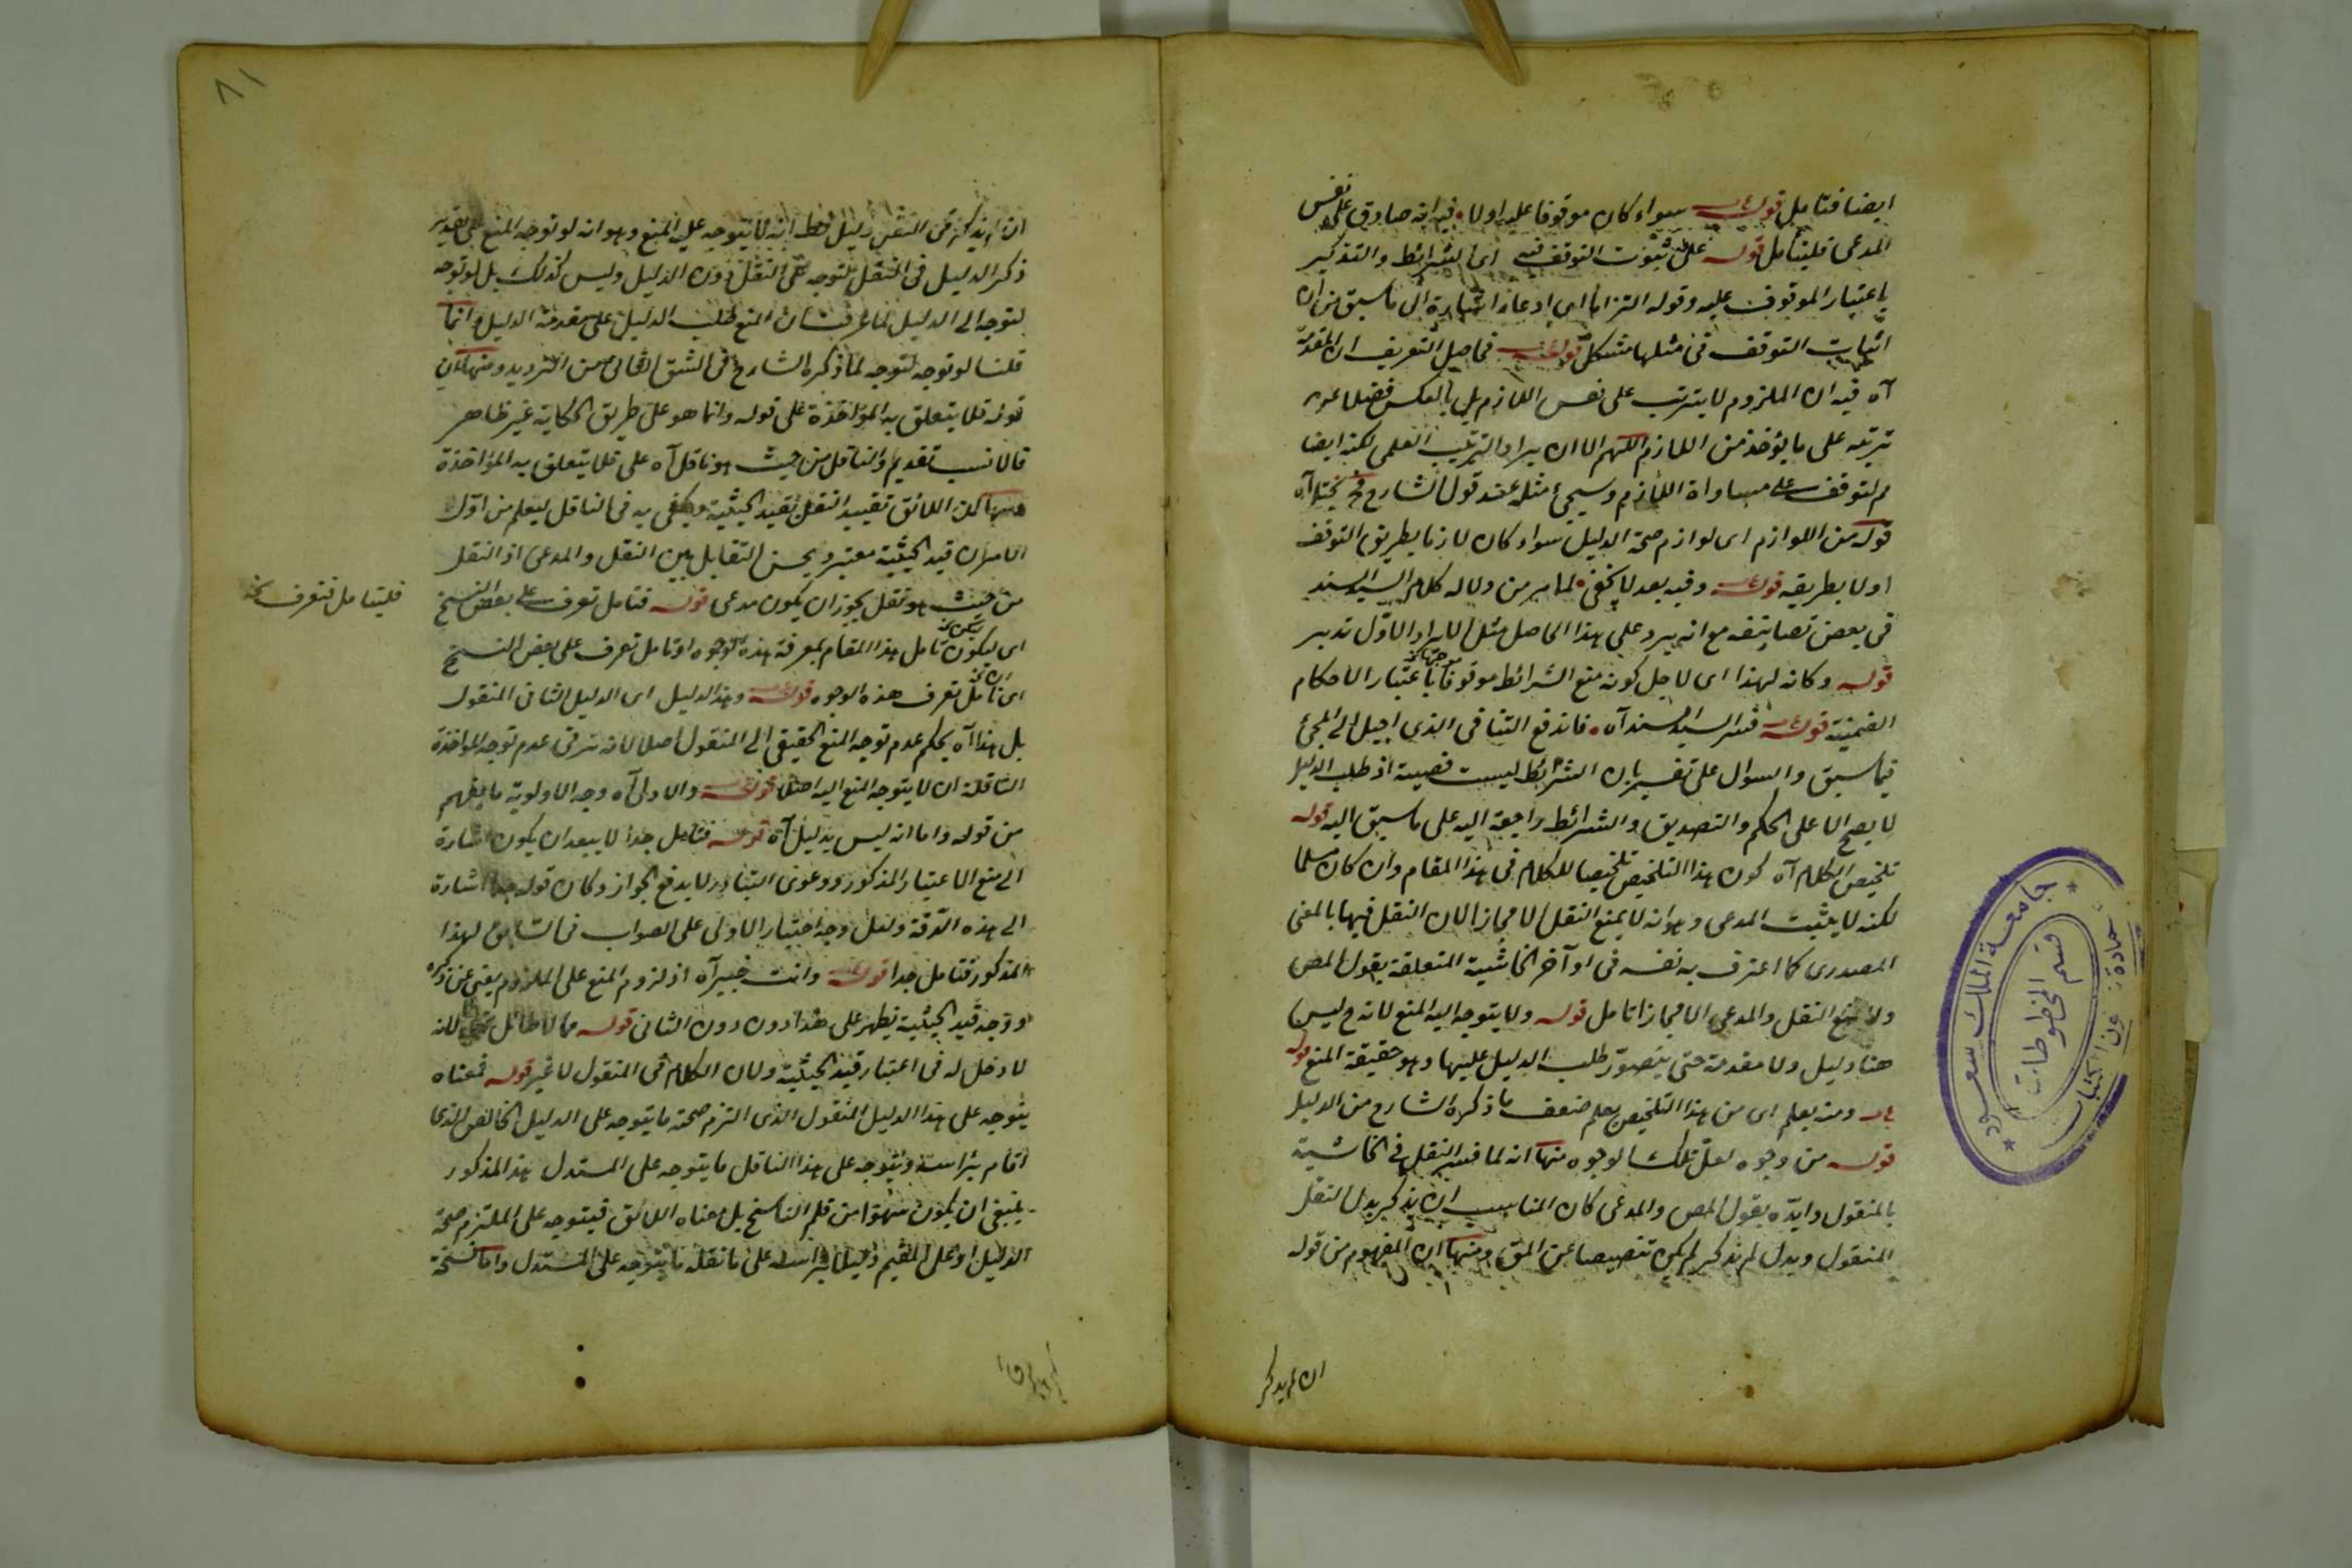 ايضا فتأمل قوله سواء كان موقوفا عليه اولا فيه انه صادق على نفس
المدعى فليتأمل قوله على ثبوت التوقف فيه اى الشرائط والتذكير
باعتبار الموقوف عليه وقوله التزاما اى ادعاء اشارة الى ما سبق من ان
اثبات التوقف فى مثلها مشكل قوله فحاصل التعريف ان المقدمة
آه فيه ان الملزوم لا يترتب على نفس اللازم بل بالعكس فضلا عن
ترتبه على ما يؤخذ من اللازم اللهم الا ان يراد الترتب العلمى لكنه ايضا
مم لتوقفه على مساواة اللازم وسيجئ مثله عند قول الشارح فح يختل آه
قوله من اللوازم اى لوازم صحة الدليل سواء كان لازما بطريق التوقف
اولا بطريقه قوله وفيه بعد لا يخفى لما مر من دلالة كلام السيد السند
فى بعض تصانيفه مع انه يرد على هذا الحاصل مثل الايراد الاول تدبر
قوله وكانه لهذا اى لاجل كونه منع الشرائط موقوفا باعتبار الاحكام
الضمنية قوله فسر السيد السند آه فاندفع التنافى الذى احيل الى المجئ
فيما سبق والسؤال على تفسير بان الشرائط ليست قضية اذ طلب الدليل
لا يصح الا على الحكم والتصديق والشرائط راجعة اليه على ما سبق اليه قوله
تلخيص الكلام آه كون هذا التلخيص تلخيصا للكلام فى هذا المقام وان كان مسلما
لكنه لا يثبت المدعى وهو انه لا يمنع النقل الا مجازا لان النقل فيها بالمعنى
المصدرى كما اعترف به نفسه فى اواخر الحاشية المتعلقة بقول المص
ولا يمنع النقل والمدعى الا مجازا تأمل قوله ولا يتوجه اليه المنع لانه ح ليس
هنا دليل ولا مقدمة حتى يتصور طلب الدليل عليها وهو حقيقة المنع قوله
ومنه يعلم اى من هذا التلخيص يعلم ضعف ما ذكره الشارح من الدليل
قوله من وجوه لعل تلك الوجوه منها انه لما فسر النقل فى الحاشية
بالمنقول وايده بقول المص والمدعى كان المناسب ان يذكر بدل النقل
المنقول وبدل لم يذكر لم يكن تنصيصا عن المق ومنها ان المفهوم من قوله
ان لم يذكر
٨١
ان لم يذكر فى النقل دليل فظ انه لا يتوجه عليه المنع وهو انه لو توجه المنع على تقدير
ذكر الدليل فى النقل لتوجه على النقل دون الدليل وليس كذلك بل لو توجه
لتوجه الى الدليل لما عرفت ان المنع طلب الدليل على مقدمة الدليل وانما
قلنا لو توجه لتوجه لما ذكره الشارح فى الشق الثانى من الترديد ومنها ان
قوله فلا يتعلق به المؤاخذة على قوله وانما هو على طريق الحكاية غير ظاهر
فالانسب تقديم والناقل من حيث هو ناقل آه على فلا يتعلق به المؤاخذة
ومنها ان اللائق تقييد النقل بقيد الحيثية ويكفى به فى الناقل ليعلم من اول
الامر ان قيد الحيثية معتبر ويحسن التقابل بين النقل والمدعى اذ النقل
من حيث هو نقل يجوز ان يكون مدعى قوله فتأمل تعرف على بعض النسخ
فليتأمل فتعرف نخ
اى ليكون تأمل هذا المقام بمعرفة هذه الوجوه او تأمل تعرف على بعض النسخ
اى تأمل تعرف هذه الوجوه قوله وهذا الدليل اى الدليل الثانى المنقول
بل هذا آه يحكم عدم توجه المنع الحقيقى الى المنقول اصلا لانه ترقى عدم توجه المؤاخذة
الناقلة ان لا يتوجه المنع اليه اصلا قوله والاولى آه وجه الاولوية ما يفهم
من قوله واما انه ليس بدليل آه قوله فتأمل جدا لا يبعد ان يكون اشارة
الى منع الاعتبار المذكور ودعوى التبادر لا يدفع الجواز وكان قوله جدا اشارة
الى هذه الدقة ولعل وجه اختيار الاولى على الصواب فى السابق لهذا
المذكور فتأمل جدا قوله وانت خبير آه اذ لزوم المنع على الملزوم يغنى عن ذكره
ووجه قيد الحيثية يظهر على هذا دون دون الثانى قوله مما لا طائل تحته لانه
لا دخل له فى اعتبار قيد الحيثية ولان الكلام فى المنقول لا غير قوله فمعناه
يتوجه على هذا الدليل المنقول الذى التزم صحته ما يتوجه على الدليل الخالص الذى
اقام برأسه ويتوجه على هذا الناقل ما يتوجه على المستدل هذا المذكور
ينبغى ان يكون سهوا من قلم الناسخ بل معناه اللائق فيتوجه على الملتزم صحة
الدليل او على المقيم دليلا برأسه على ما نقله ما يتوجه على المستدل واما نسخة
جامعة الملك سعود
قسم المخطوطات
عمادة شؤون المكتبات